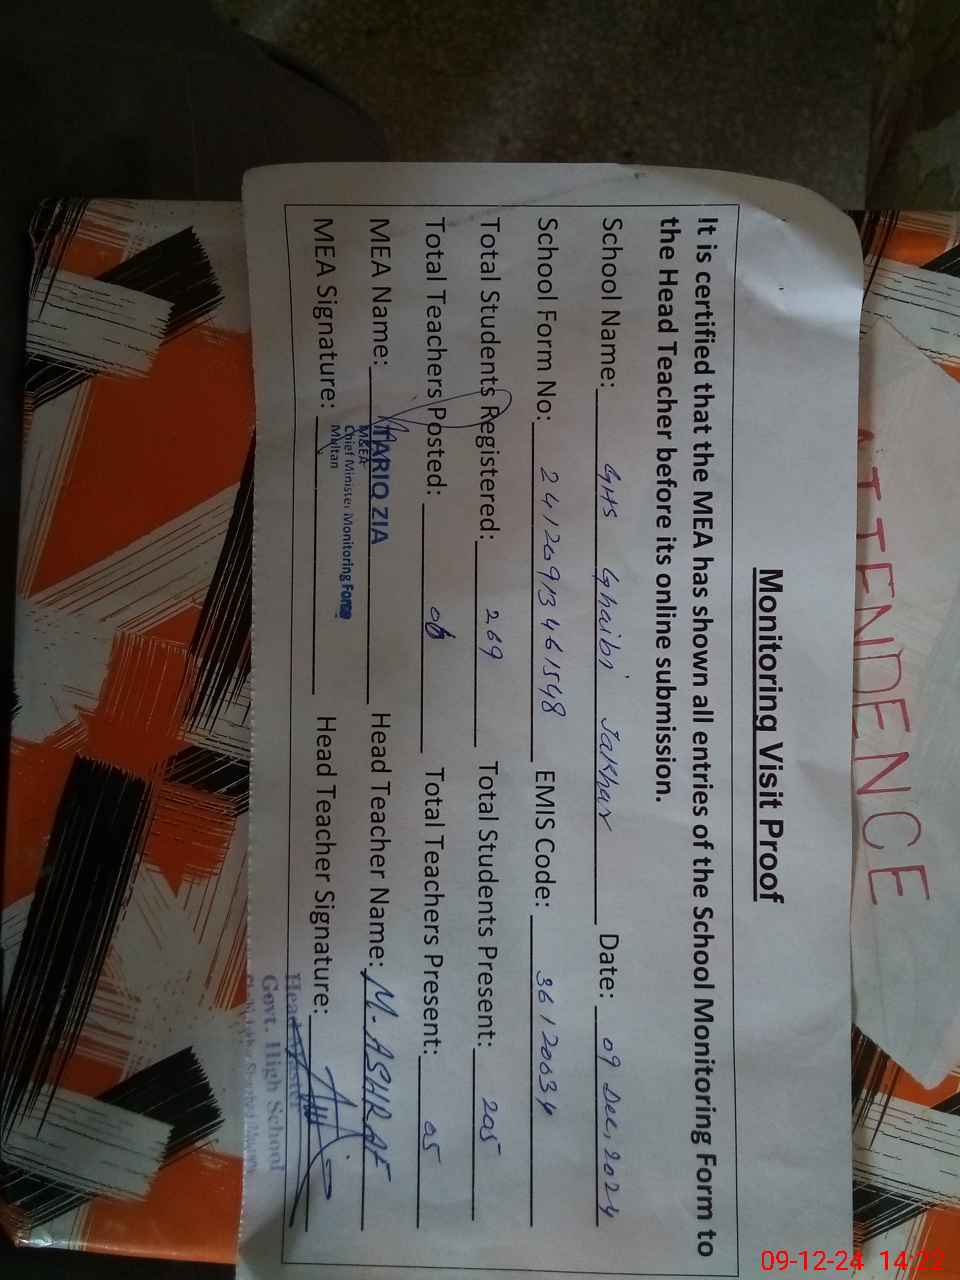 ATTENDENCE
Monitoring Visit Proof
It is certified that the MEA has shown all entries of the School Monitoring Form to
the Head Teacher before its online submission.
School Name: GHS Ghaibi Jakhar Date: 09 Dec, 2024
School Form No: 2412091346 1548 EMIS Code: 36120034
Total Students Registered: 269 Total Students Present: 205
Total Teachers Posted: 06 Total Teachers Present: 05
MEA Name: TARIQ ZIA Head Teacher Name: M. ASHRAF
M&EA
Chief Minister Monitoring Force
Multan
MEA Signature: Head Teacher Signature:
Head Master
Govt. High School
09-12-24 14:22